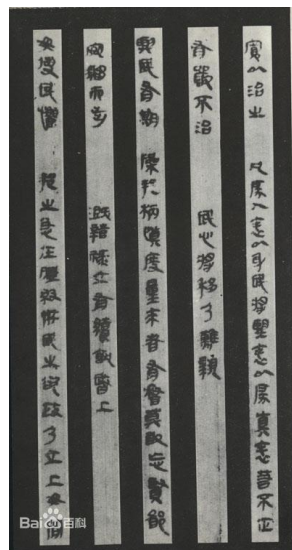 寬以治之 凡戾人表以身民將望表以戾真表若不正
有嚴不治 民心將移乃難親
與民有期 操邦柄慎度量來者有稽莫敢忘賢鄙
安騶而步 溉辥祿立有續孰暋上
毋使民懼 邦之急在體級掇民之欲政乃立上毋間
Baidu百科